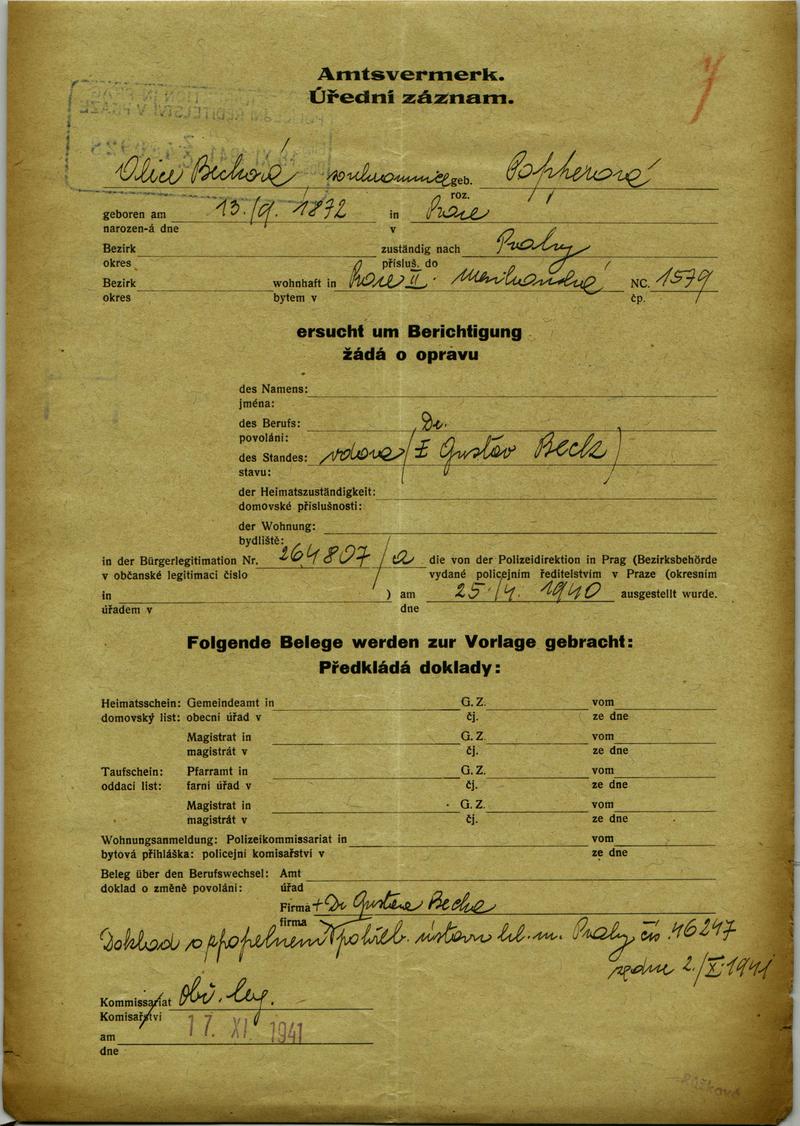 Amtsvermerk.
Úřední záznam.
7
Alice Becková, soukromnice geb. Popperová
roz.
geboren am 13./9. 1872 in Praze
narozen-á dne v
Bezirk zuständig nach Prahy
okres přísluš. do
Bezirk wohnhaft in Praze II. NC. 1579
okres bytem v čp.
ersucht um Berichtigung
žádá o opravu
des Namens:
jména:
des Berufs: Dr.
povolání:
des Standes: vdova (Ŧ Gustav Beck)
stavu:
der Heimatszuständigkeit:
domovské příslušnosti:
der Wohnung:
bydliště:
in der Bürgerlegitimation Nr. 264807/ die von der Polizeidirektion in Prag (Bezirksbehörde
v občanské legitimaci číslo vydané policejním ředitelstvím v Praze (okresním
in ) am 25./4. 1940 ausgestellt wurde.
úřadem v dne
Folgende Belege werden zur Vorlage gebracht:
Předkládá doklady:
Heimatsschein: Gemeindeamt in G. Z. vom
domovský list: obecní úřad v čj. ze dne
Magistrat in G. Z. vom
magistrát v čj. ze dne
Taufschein: Pfarramt in G. Z. vom
oddací list: farní úřad v čj. ze dne
Magistrat in G. Z. vom
magistrát v čj. ze dne
Wohnungsanmeldung: Polizeikommissariat in vom
bytová přihláška: policejní komisařství v ze dne
Beleg über den Berufswechsel: Amt
doklad o změně povolání: úřad
Firma + Dr Gustava Becka
firma
Doklad o zpopelnění pohřeb. ústavu hl. m. Prahy čís. 46247
ze dne 2./X. 1941
Kommissariat Obv. leg.
Komisařství
am 17. XI. 1941
dne
Růžková